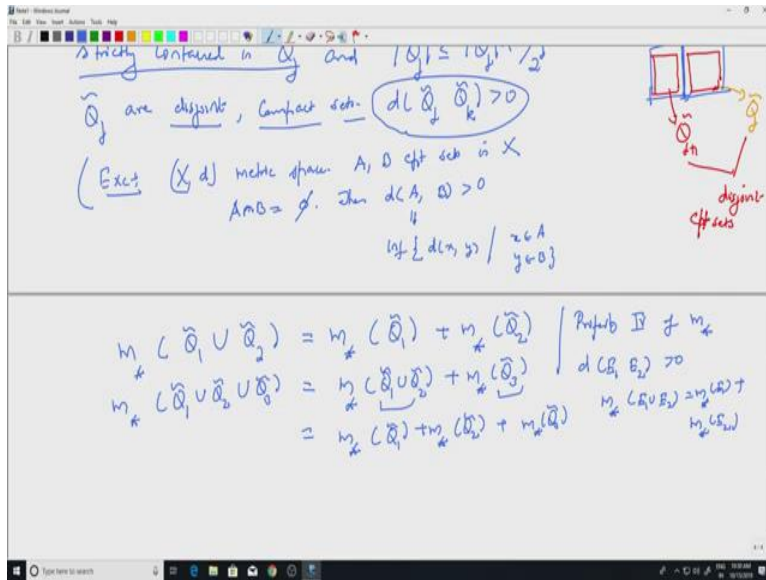 Note1 - Windows Journal
File Edit View Insert Actions Tools Help
strictly contained in Q_j and |Q_j| ≤ |Q̃_j| + /2^j
Q̃_j are disjoint, compact sets. d(Q̃_j, Q̃_k) > 0
(Exc: (X, d) metric space. A, B cpt sets in X
A∩B = ∅. Then d(A, B) > 0
inf { d(x, y) / x∈A
y∈B}
Q̃_j
Q̃_j+1
disjoint
cpt sets
m_* (Q̃_1 ∪ Q̃_2) = m_* (Q̃_1) + m_* (Q̃_2)
m_* (Q̃_1 ∪ Q̃_2 ∪ Q̃_3) = m_* (Q̃_1 ∪ Q̃_2) + m_* (Q̃_3)
= m_* (Q̃_1) + m_* (Q̃_2) + m_* (Q̃_3)
Property IV of m_*
d(E_1, E_2) > 0
m_* (E_1 ∪ E_2) = m_*(E_1) +
m_*(E_2)
Type here to search
10:30 AM
10/13/2019